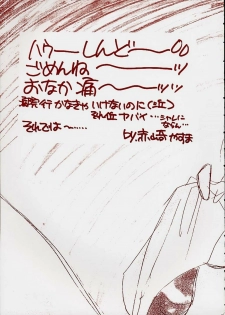 ハウーしんどー〜〜
ごめんねー〜〜ッ
おなか痛ー〜〜ッッ
行かなきゃいけないのに(泣)
ヤバイ…シャレに
ならん…
それでは〜……
by.赤崎やすま